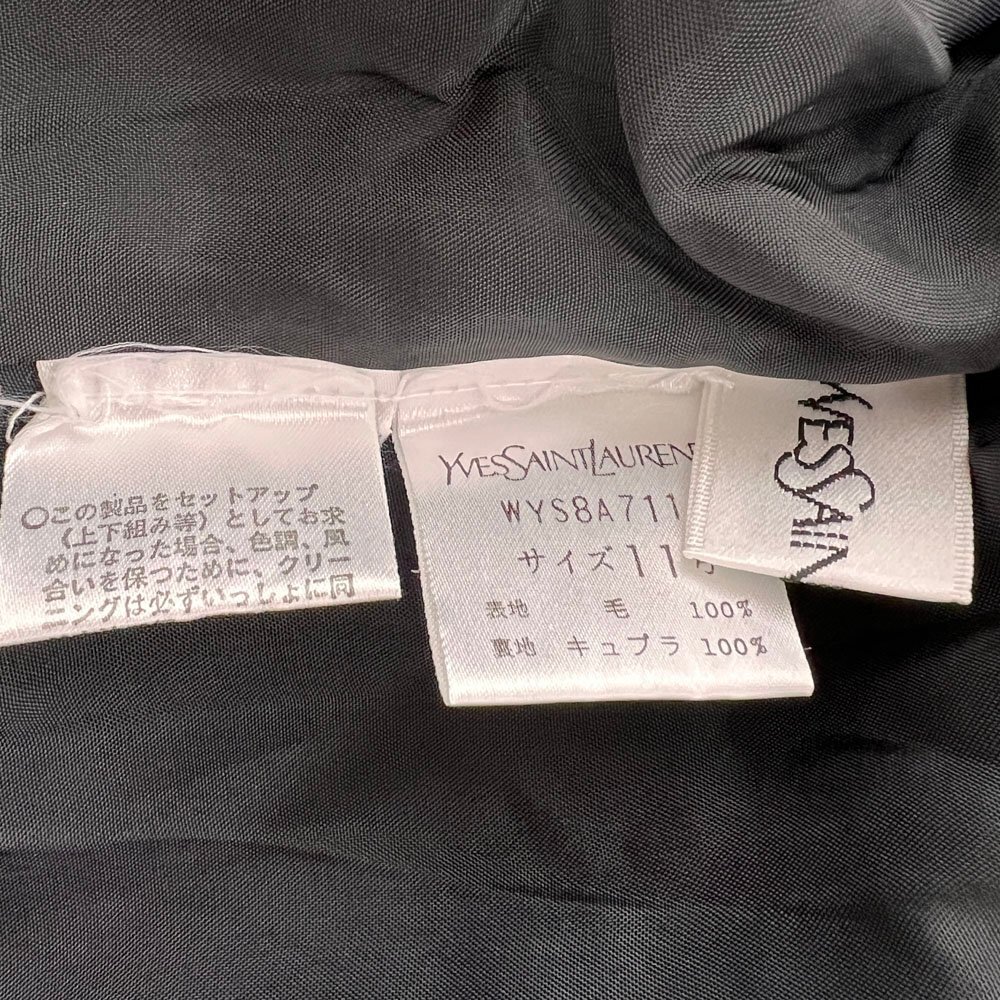 ○この製品をセットアップ
（上下組み等）としてお求
めになった場合、色調、風
合いを保つために、クリー
ニングは必ずいっしょに同
YVESSAINTLAUREN
WYS8A711
サイズ11号
表地 毛 100%
裏地 キュプラ 100%
YVESSAIN